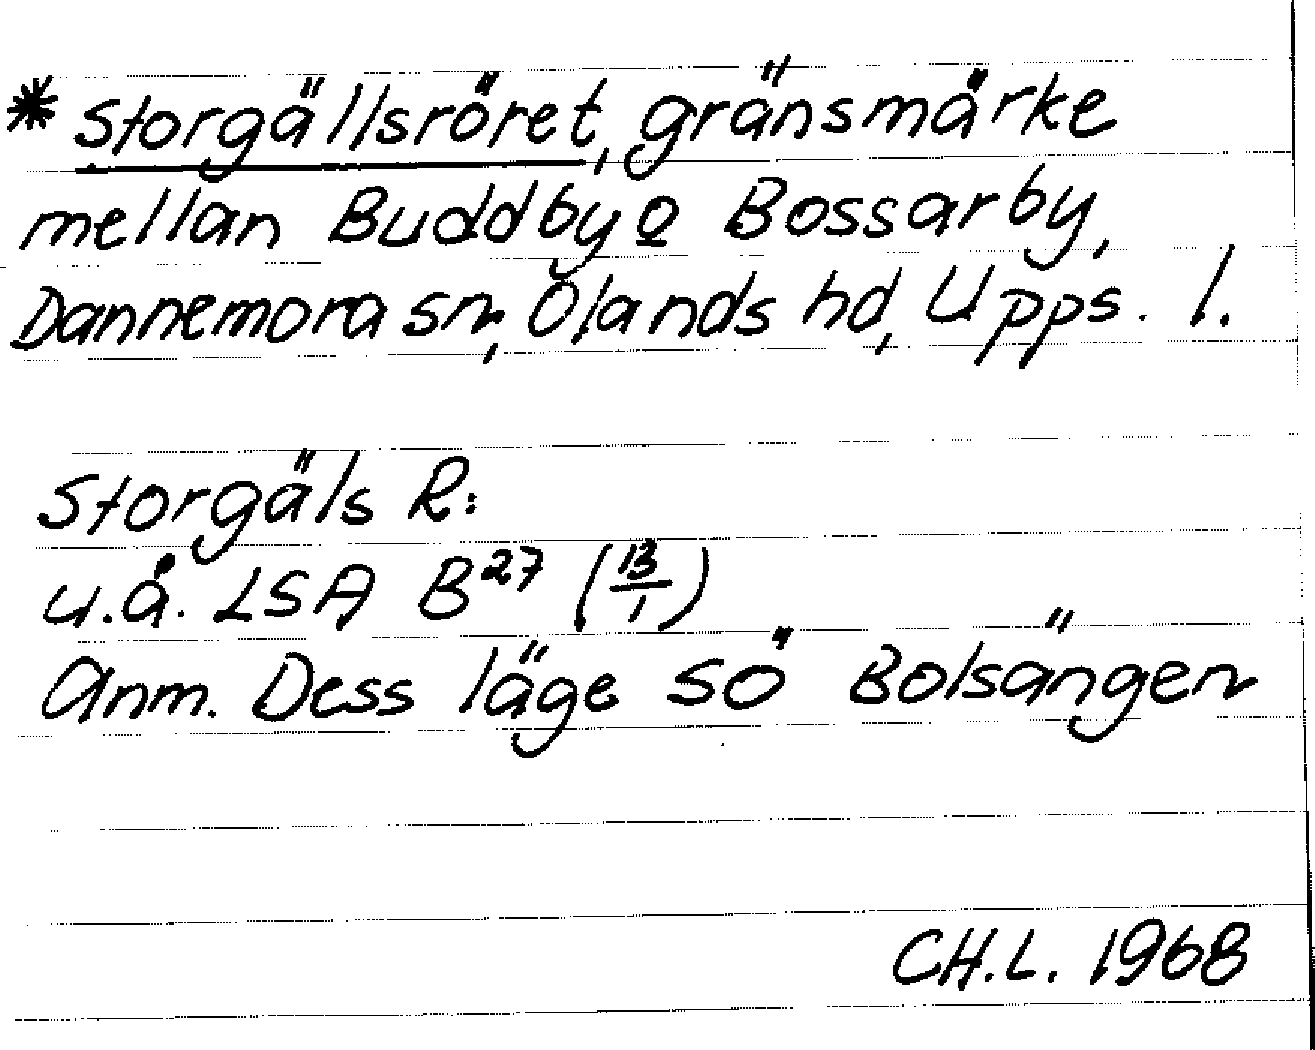 * Storgällsröret, gränsmärke
mellan Buddby o Bossarby,
Dannemora sn, Olands hd, Upps. l.
Storgäls R:
u.å. LSA B²⁷ (13/1)
Anm. Dess läge SÖ Bolsängen
CH.L. 1968